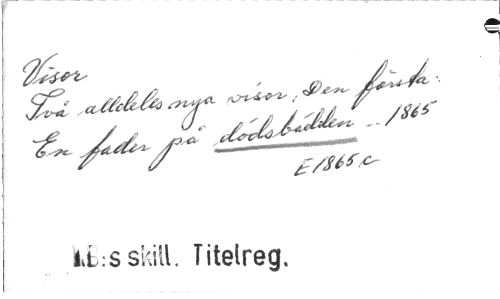 Visor
Två alldeles nya visor. Den första:
En fader på dödsbädden .. 1865
E 1865 c
KB:s skill. Titelreg.